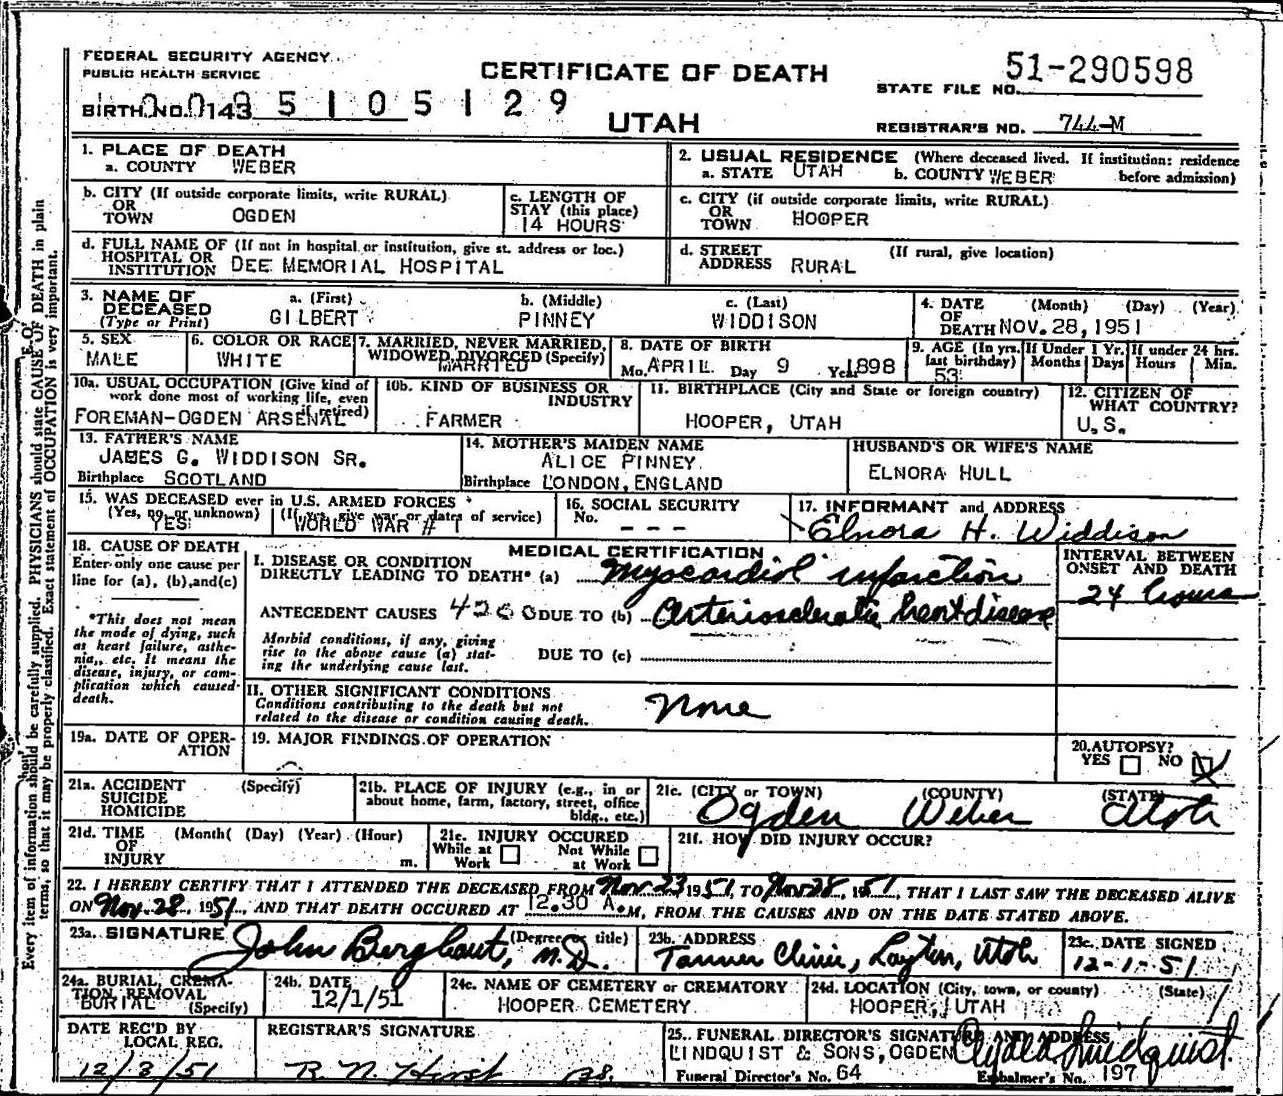 FEDERAL SECURITY AGENCY
PUBLIC HEALTH SERVICE
CERTIFICATE OF DEATH
UTAH
STATE FILE NO. 51-290598
BIRTH NO. 143 5105129
REGISTRAR'S NO. 744-M
Every item of information should be carefully supplied. PHYSICIANS should state CAUSE OF DEATH in plain
terms, so that it may be properly classified. Exact statement of OCCUPATION is very important.
1. PLACE OF DEATH
a. COUNTY WEBER
2. USUAL RESIDENCE (Where deceased lived. If institution: residence
a. STATE UTAH b. COUNTY WEBER before admission)
b. CITY (If outside corporate limits, write RURAL)
OR
TOWN OGDEN
c. LENGTH OF
STAY (this place)
14 HOURS
c. CITY (if outside corporate limits, write RURAL)
OR
TOWN HOOPER
d. FULL NAME OF (If not in hospital or institution, give st. address or loc.)
HOSPITAL OR
INSTITUTION DEE MEMORIAL HOSPITAL
d. STREET (If rural, give location)
ADDRESS RURAL
3. NAME OF DECEASED (Type or Print)
a. (First) b. (Middle) c. (Last)
GILBERT PINNEY WIDDISON
4. DATE (Month) (Day) (Year)
OF
DEATH NOV. 28, 1951
5. SEX
MALE
6. COLOR OR RACE
WHITE
7. MARRIED, NEVER MARRIED,
WIDOWED, DIVORCED (Specify)
MARRIED
8. DATE OF BIRTH
Mo. APRIL Day 9 Yr. 1898
9. AGE (In yrs. last birthday) 53
If Under 1 Yr. Months Days
If under 24 hrs. Hours Min.
10a. USUAL OCCUPATION (Give kind of
work done most of working life, even
if retired)
FOREMAN-OGDEN ARSENAL
10b. KIND OF BUSINESS OR
INDUSTRY
FARMER
11. BIRTHPLACE (City and State or foreign country)
HOOPER, UTAH
12. CITIZEN OF
WHAT COUNTRY?
U.S.
13. FATHER'S NAME
JAMES G. WIDDISON SR.
Birthplace SCOTLAND
14. MOTHER'S MAIDEN NAME
ALICE PINNEY
Birthplace LONDON, ENGLAND
HUSBAND'S OR WIFE'S NAME
ELNORA HULL
15. WAS DECEASED ever in U.S. ARMED FORCES
(Yes, no, or unknown) (If yes, give war or dates of service)
YES WORLD WAR # 1
16. SOCIAL SECURITY
No. - - -
17. INFORMANT and ADDRESS
Elnora H. Widdison
18. CAUSE OF DEATH
Enter only one cause per
line for (a), (b), and (c)
*This does not mean
the mode of dying, such
as heart failure, asthe-
nia, etc. It means the
disease, injury, or com-
plication which caused
death.
MEDICAL CERTIFICATION
I. DISEASE OR CONDITION
DIRECTLY LEADING TO DEATH* (a) Myocardial infarction
ANTECEDENT CAUSES 4200 DUE TO (b) Arteriosclerotic heart disease
Morbid conditions, if any, giving
rise to the above cause (a) stat-
ing the underlying cause last.
DUE TO (c)
INTERVAL BETWEEN
ONSET AND DEATH
24 hours
II. OTHER SIGNIFICANT CONDITIONS
Conditions contributing to the death but not
related to the disease or condition causing death.
None
19a. DATE OF OPER-
ATION
19. MAJOR FINDINGS OF OPERATION
20. AUTOPSY?
YES NO
21a. ACCIDENT (Specify)
SUICIDE
HOMICIDE
21b. PLACE OF INJURY (e.g., in or
about home, farm, factory, street, office
bldg., etc.)
21c. (CITY or TOWN) (COUNTY) (STATE)
Ogden Weber Utah
21d. TIME (Month( (Day) (Year) (Hour)
OF
INJURY m.
21e. INJURY OCCURED
While at Work Not While at Work
21f. HOW DID INJURY OCCUR?
22. I HEREBY CERTIFY THAT I ATTENDED THE DECEASED FROM Nov 23 1951, TO Nov 28, 1951, THAT I LAST SAW THE DECEASED ALIVE
ON Nov. 28, 1951, AND THAT DEATH OCCURED AT 12.30 A.M, FROM THE CAUSES AND ON THE DATE STATED ABOVE.
23a. SIGNATURE (Degree or title)
John Berghaut, M.D.
23b. ADDRESS
Tanner Clinic, Layton, Utah
23c. DATE SIGNED
12-1-51
24a. BURIAL, CREMA-
TION, REMOVAL
(Specify)
BURIAL
24b. DATE
12/1/51
24c. NAME OF CEMETERY or CREMATORY
HOOPER CEMETERY
24d. LOCATION (City, town, or county) (State)
HOOPER, UTAH
DATE REC'D BY
LOCAL REG.
12/3/51
REGISTRAR'S SIGNATURE
R. N. Hirst
25. FUNERAL DIRECTOR'S SIGNATURE AND ADDRESS
LINDQUIST & SONS, OGDEN Clyde Lindquist
Funeral Director's No. 64 Embalmer's No. 197